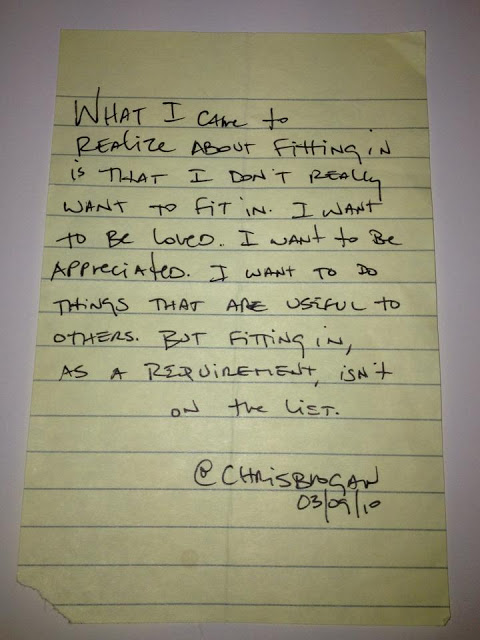 WHAT I CAME to
REALIZE ABOUT FITTING IN
is THAT I DON'T REALLY
WANT TO FIT IN. I WANT
to BE LOVED. I WANT to BE
APPRECIATED. I WANT TO DO
THINGS THAT ARE USEFUL TO
OTHERS. BUT FITTING IN,
AS A REQUIREMENT, isn't
on the LIST.
@CHRISBROGAN
03/09/10